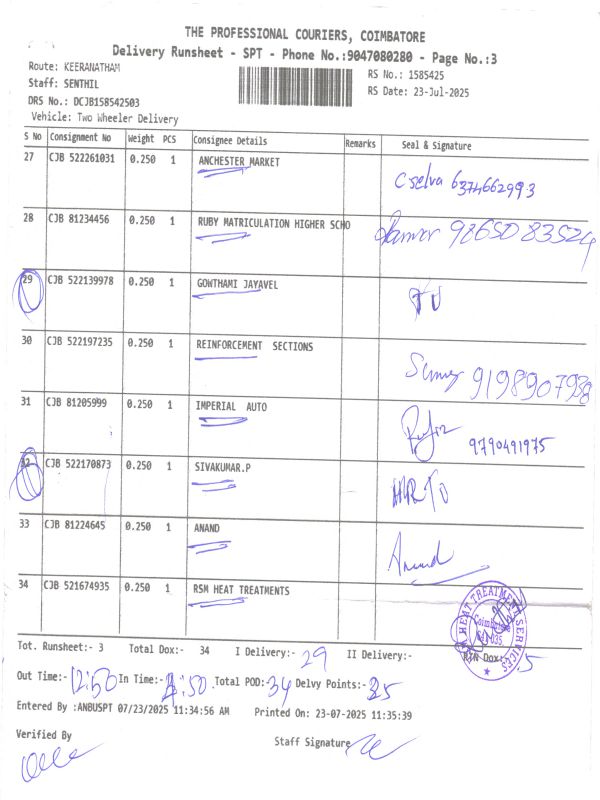 THE PROFESSIONAL COURIERS, COIMBATORE
Delivery Runsheet - SPT - Phone No.:9047080280 - Page No.:3
Route: KEERANATHAM
RS No.: 1585425
Staff: SENTHIL
RS Date: 23-Jul-2025
DRS No.: DCJB158542503
Vehicle: Two Wheeler Delivery
S No Consignment No Weight PCS Consignee Details Remarks Seal & Signature
27 CJB 522261031 0.250 1 ANCHESTER MARKET
C selva 6374662993
28 CJB 81234456 0.250 1 RUBY MATRICULATION HIGHER SCHO
98650 83524
29 CJB 522139978 0.250 1 GOWTHAMI JAYAVEL
TU
30 CJB 522197235 0.250 1 REINFORCEMENT SECTIONS
9198907938
31 CJB 81205999 0.250 1 IMPERIAL AUTO
9790491975
32 CJB 522170873 0.250 1 SIVAKUMAR.P
33 CJB 81224645 0.250 1 ANAND
Anand
34 CJB 521674935 0.250 1 RSM HEAT TREATMENTS
HEAT TREATMENT SERVICES
Coimbatore
Tot. Runsheet:- 3 Total Dox:- 34 I Delivery:- 29 II Delivery:- RTN Dox:- 5
Out Time:- 12:50 In Time:- :50 Total POD:- 34 Delvy Points:- 25
Entered By :ANBUSPT 07/23/2025 11:34:56 AM Printed On: 23-07-2025 11:35:39
Verified By
Staff Signature